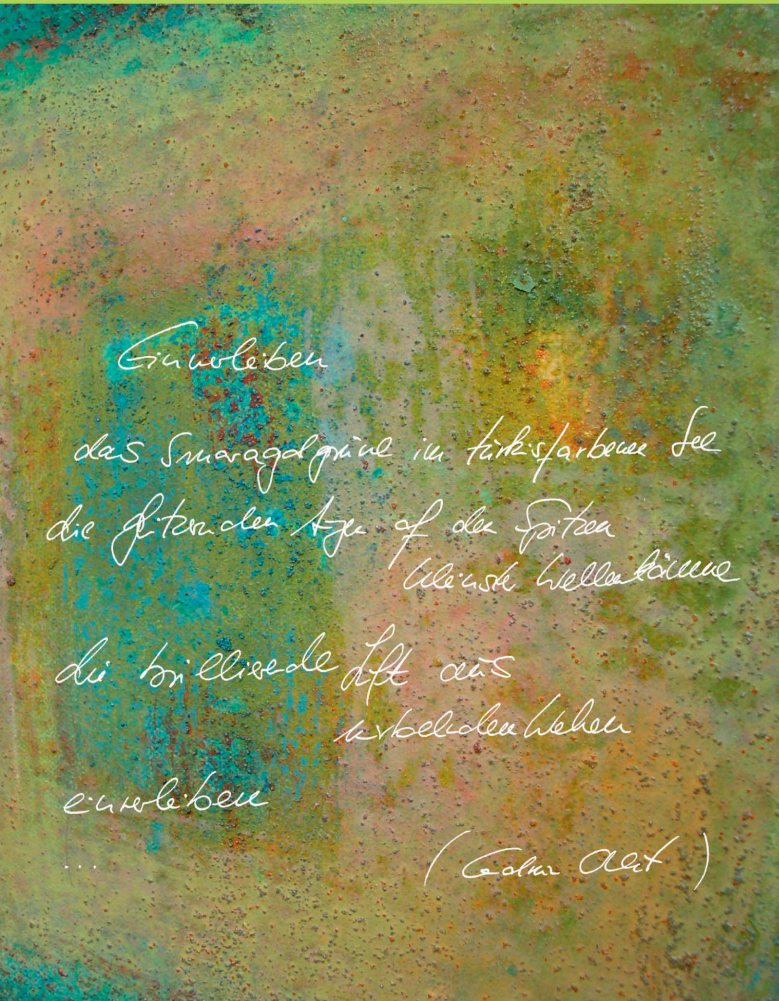 Einverleiben
das Smaragdgrüne im türkisfarbenen See
die glitzernden auf den Spitzen
kleinster Wellenkämme
die brillierende Luft aus
wirbelnden Wehen
einverleiben
...
(
)